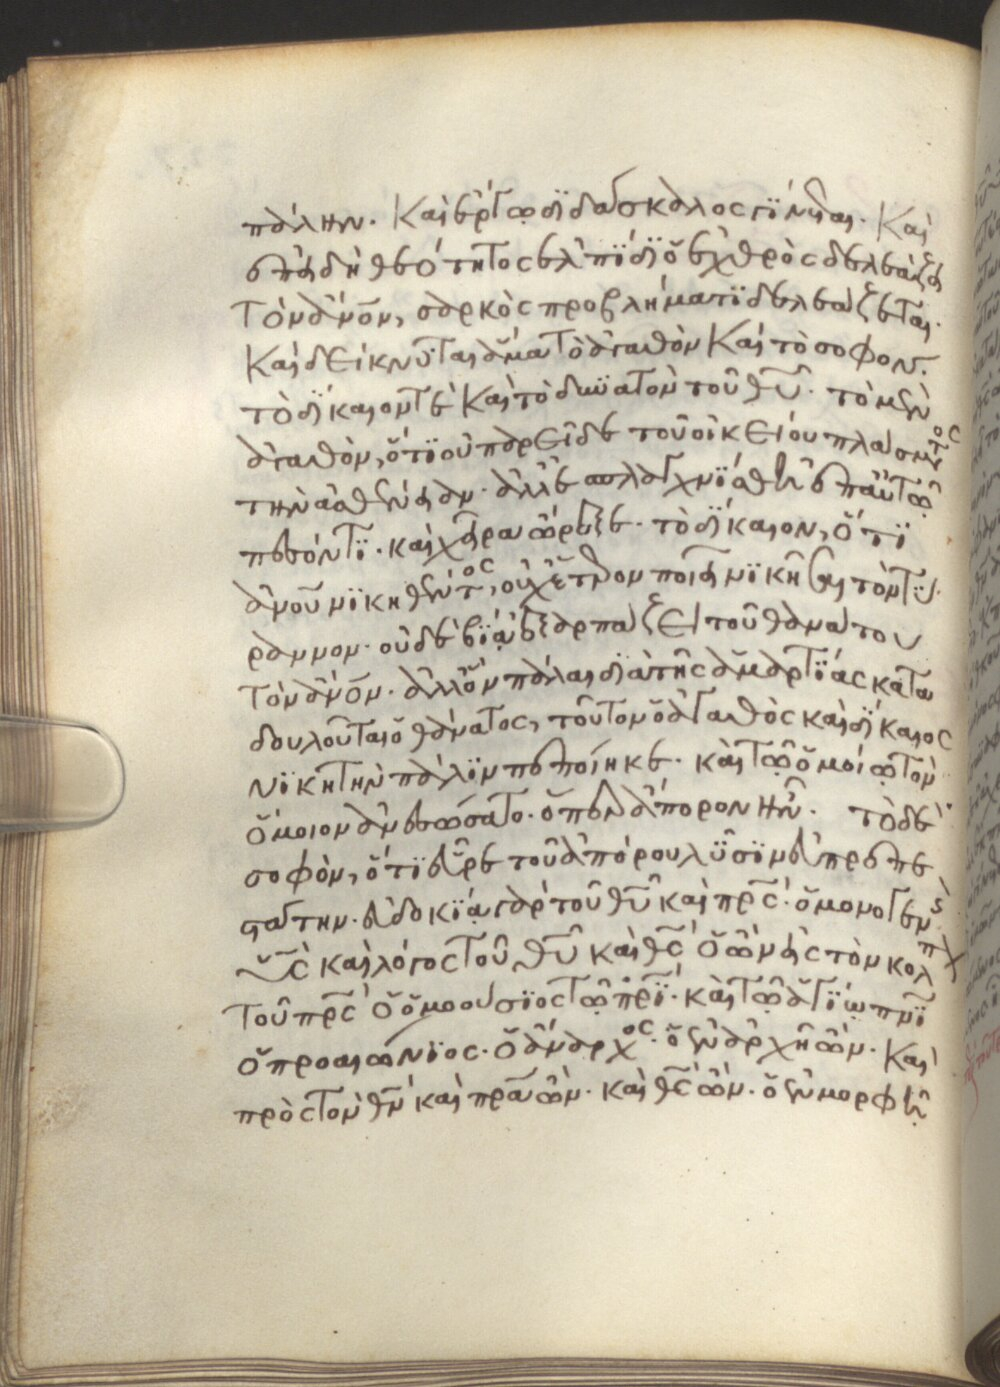 πάλην. Καὶ ἔργω διδάσκαλος γίνεται. Καὶ
ἐπειδὴ θεότητος ἐλπίδι ὁ ἐχθρὸς δελεάζει
τὸν ἄνον, σαρκὸς προβλήματι δελεάζεται.
Καὶ δείκνυται ἅμα τὸ ἀγαθὸν Καὶ τὸ σοφον.
τὸ δίκαιον τὲ Καὶ τὸ δυνατὸν τοῦ θυ. τὸ μὲν
ἀγαθὸν, ὅτι οὐ παρεῖδε τοῦ οἰκείου πλάσματος
τὴν ἀσθένειαν. ἀλλ' ἐσπλαγχνίσθη ἐπ' αὐτῶ
πεσόντι. καὶ χεῖρα ὤρεξε. τὸ δίκαιον, ὅτι
ἀνου νικηθέντος, οὐχ ἕτερον ποιεῖ νικῆσαι τὸν τύ-
ραννον. οὐδὲ βία ἐξαρπάζει τοῦ θανάτου
τὸν ἄνον. ἀλλ' ὃν πάλαι διὰ τῆς ἁμαρτίας κατα
δουλοῦται ὁ θάνατος, τοῦτον ὁ ἀγαθὸς καὶ δίκαιος
νικητὴν πάλιν πεποίηκε. καὶ τῶ ὁμοίω τὸν
ὅμοιον ἀνεσώσατο. ὅπερ ἄπορον ἦν. τὸ δὲ
σοφὸν, ὅτι εὗρε τοῦ ἀπόρου λύσιν εὐπρεπε
στάτην. εὐδοκία γὰρ τοῦ θυ καὶ πρς. ὁ μονογενὴς
υς καὶ λόγος τοῦ θυ καὶ θς ὁ ὢν εἰς τὸν κόλπον
τοῦ πρς ὁ ὁμοούσιος τῶ πρι. καὶ τῶ ἁγίω πνι
ὁ προαιώνιος. ὁ ἄναρχος. ὁ ἐν ἀρχῆ ὤν. Καὶ
πρὸς τὸν θν καὶ πρα ὤν. καὶ θς ὤν. ὁ ἐν μορφῆ